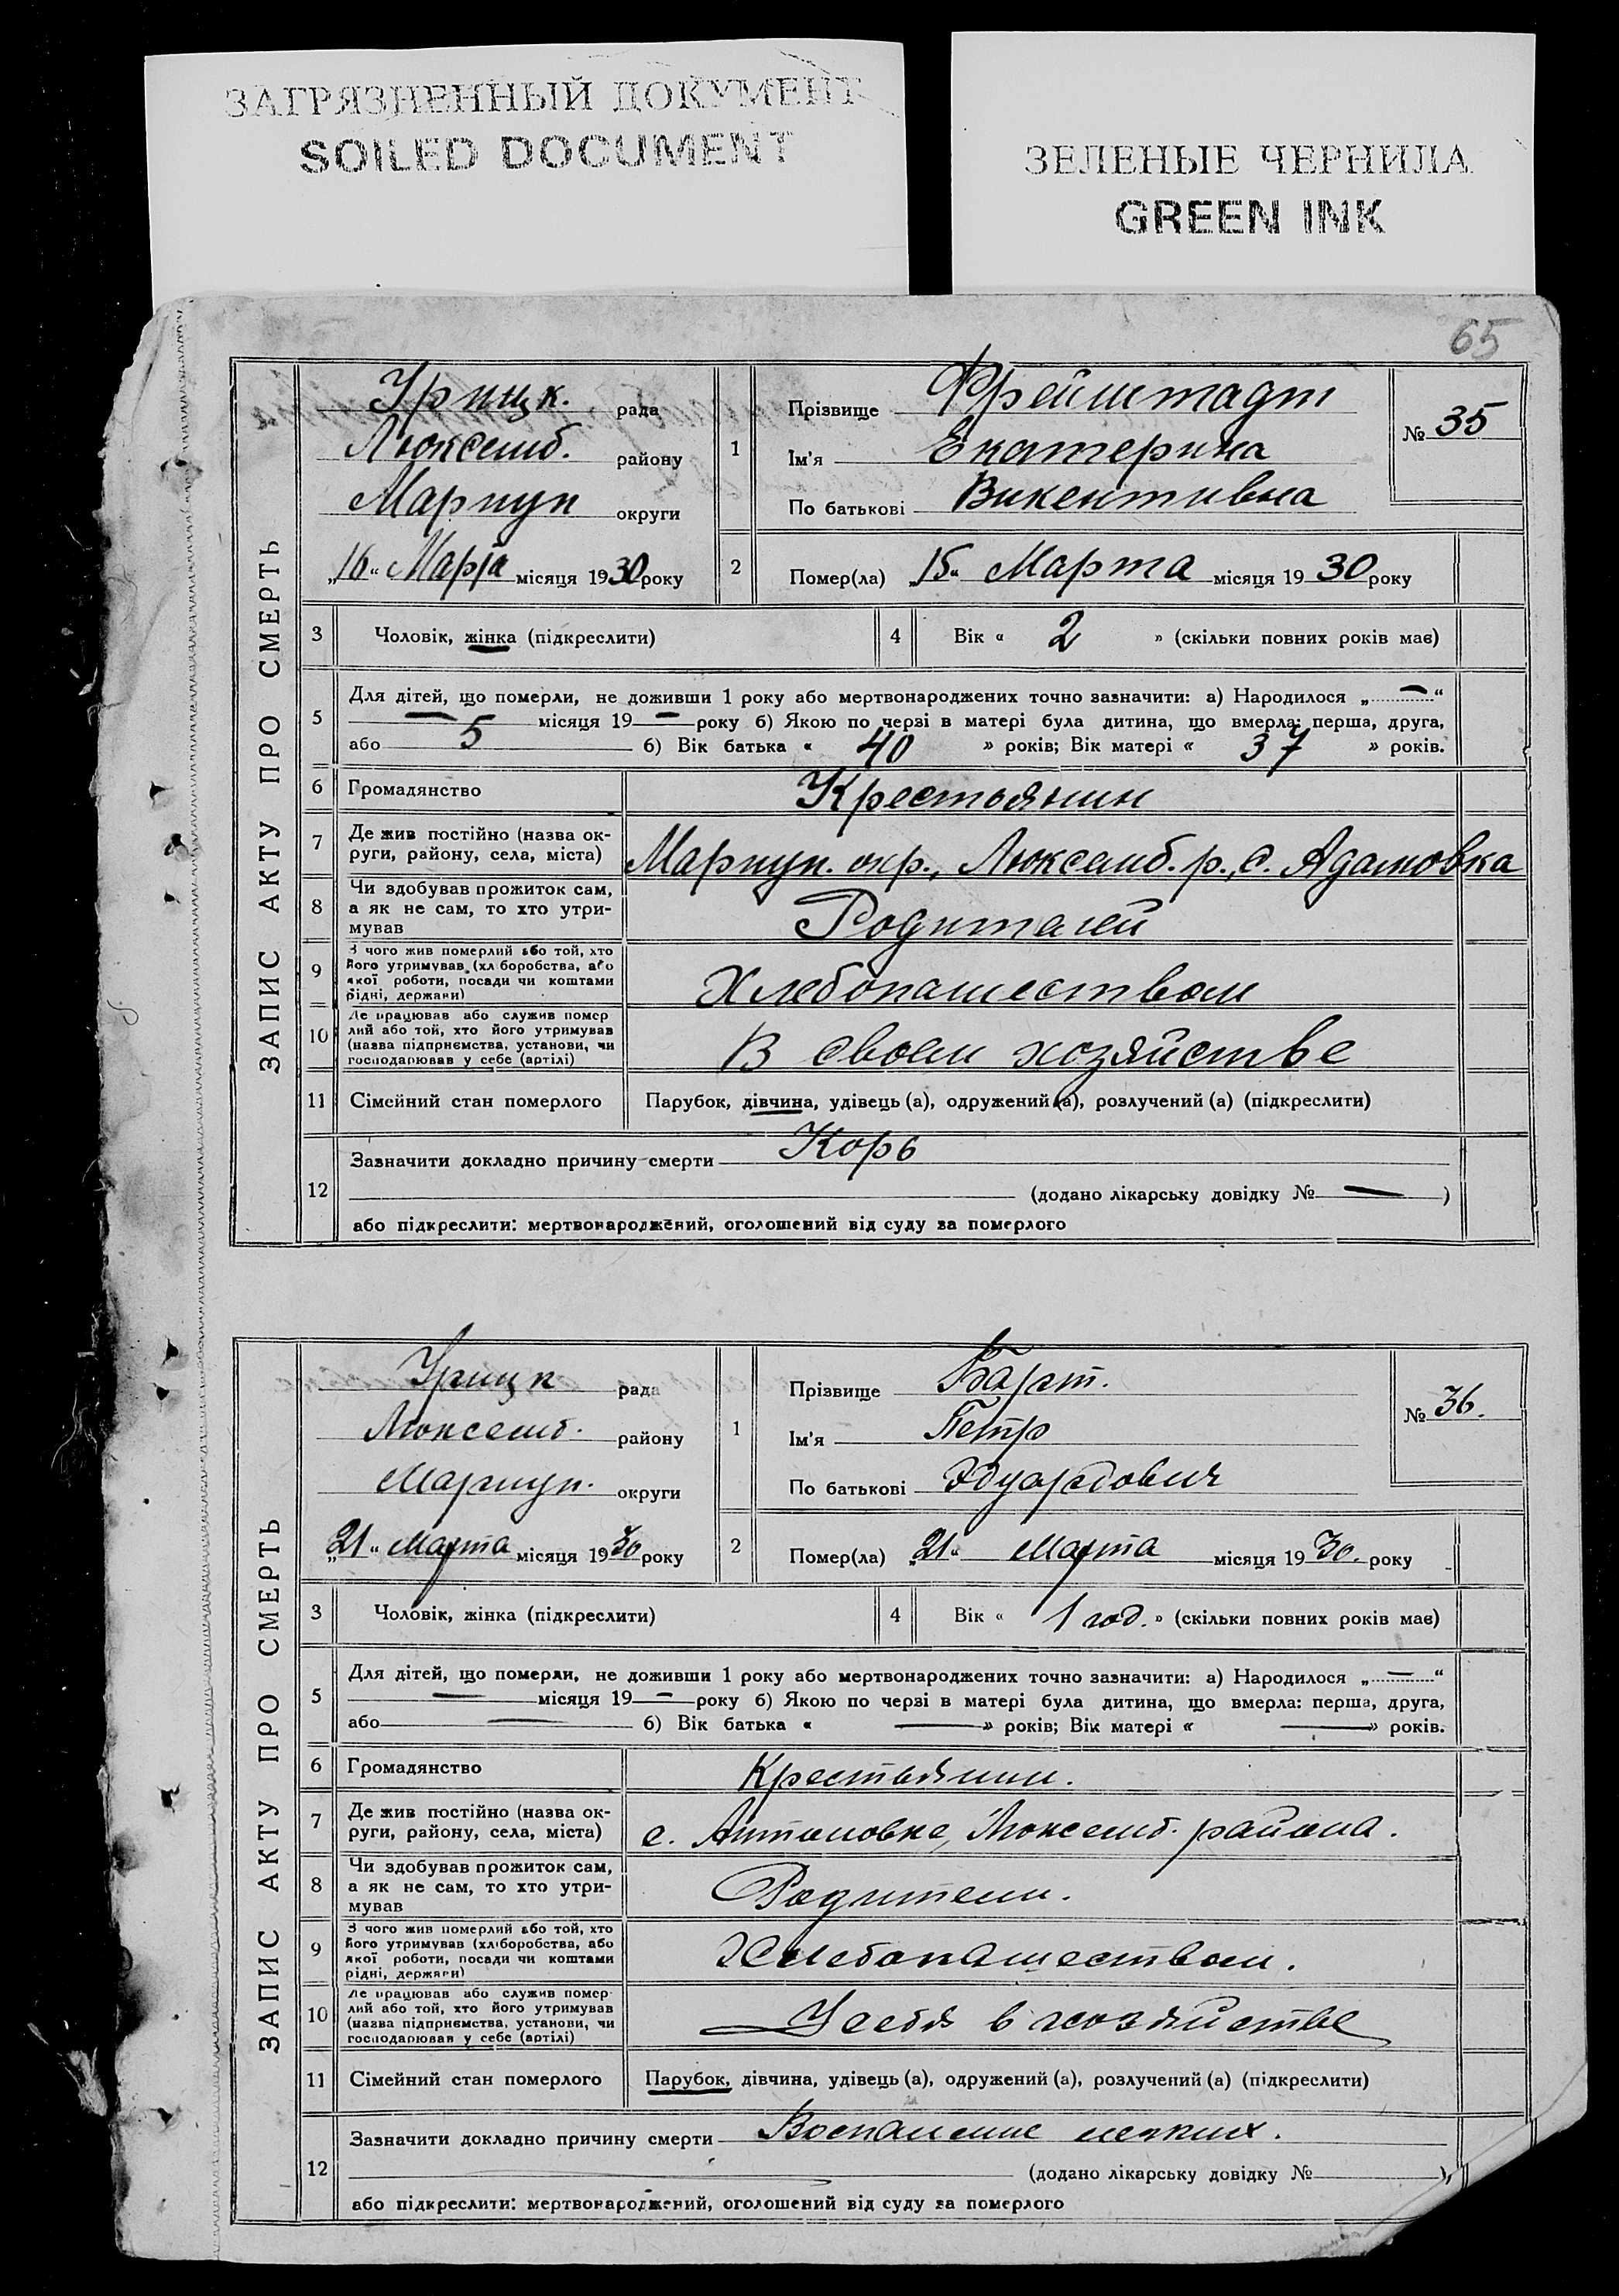 ЗАГРЯЗНЕННЫЙ ДОКУМЕНТ
SOILED DOCUMENT
ЗЕЛЕНЫЕ ЧЕРНИЛА
GREEN INK
65
ЗАПИС АКТУ ПРО СМЕРТЬ
Урицк. рада
Люксемб. району
Мариуп округи
„16“ Марта місяця 1930 року
1
Прізвище Фрейштадт
Ім'я Екатерина
По батькові Викентивна
№ 35
2 Помер(ла) „15“ Марта місяця 1930 року
3 Чоловік, жінка (підкреслити)
4 Вік « 2 » (скільки повних років має)
5 Для дітей, що померли, не доживши 1 року або мертвонароджених точно зазначити: а) Народилося „ — “
— місяця 19 — року б) Якою по черзі в матері була дитина, що вмерла: перша, друга,
або 5 б) Вік батька « 40 » років; Вік матері « 37 » років.
6 Громадянство Крестьянин
7 Де жив постійно (назва ок-
руги, району, села, міста) Мариуп. окр., Люксемб. р., с. Адамовка
8 Чи здобував прожиток сам,
а як не сам, то хто утри-
мував Родителей
9 З чого жив померлий або той, хто
його утримував (хліборобства, або
якої роботи, посади чи коштами
рідні, держави) Хлебопашеством
10 Де працював або служив помер
лий або той, хто його утримував
(назва підприємства, установи, чи
господарював у себе (артілі) В своем хозяйстве
11 Сімейний стан померлого Парубок, дівчина, удівець (а), одружений (а), розлучений (а) (підкреслити)
12 Зазначити докладно причину смерти Корь
(додано лікарську довідку № — )
або підкреслити: мертвонароджений, оголошений від суду за померлого
ЗАПИС АКТУ ПРО СМЕРТЬ
Урицк рада
Люксемб. району
Мариуп. округи
„21“ Марта місяця 1930 року
1
Прізвище Барт.
Ім'я Петр
По батькові Эдуардович
№ 36.
2 Помер(ла) „21“ Марта місяця 1930. року
3 Чоловік, жінка (підкреслити)
4 Вік « 1 год. » (скільки повних років має)
5 Для дітей, що померли, не доживши 1 року або мертвонароджених точно зазначити: а) Народилося „ — “
— місяця 19 — року б) Якою по черзі в матері була дитина, що вмерла: перша, друга,
або — б) Вік батька « — » років; Вік матері « — » років.
6 Громадянство Крестьянин.
7 Де жив постійно (назва ок-
руги, району, села, міста) с. Антоновке, Люксемб. района.
8 Чи здобував прожиток сам,
а як не сам, то хто утри-
мував Родители.
9 З чого жив померлий або той, хто
його утримував (хліборобства, або
якої роботи, посади чи коштами
рідні, держави) Хлебопашеством.
10 Де працював або служив помер-
лий або той, хто його утримував
(назва підприємства, установи, чи
господарював у себе (артілі) У себя в хозяйстве
11 Сімейний стан померлого Парубок, дівчина, удівець (а), одружений (а), розлучений (а) (підкреслити)
12 Зазначити докладно причину смерти Воспаление легких.
(додано лікарську довідку № )
або підкреслити: мертвонароджений, оголошений від суду за померлого